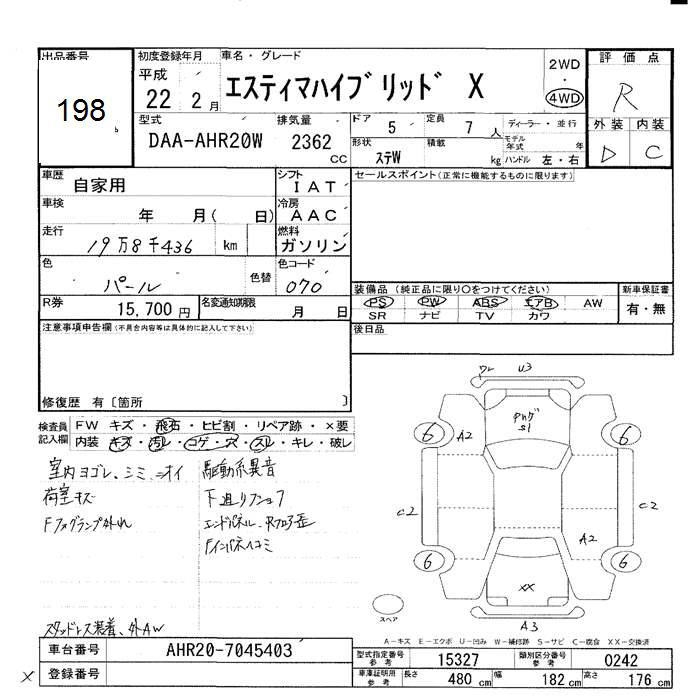 出品番号
198
初度登録年月
平成
22 2月
車名・グレード
エスティマハイブリッド X
2WD
・
4WD
評価点
R
外装 内装
D C
型式
DAA-AHR20W
排気量
2362
CC
ドア 5
定員 7 人
ディーラー・並行
モデル年式 年
形状 ステW
積載 kg
ハンドル 左・右
車歴
自家用
シフト
IAT
車検
年 月( 日)
冷房
AAC
走行
19万8千436 km
燃料
ガソリン
色
パール
色替
色コード
070
R券
15,700円
名変通知期限
月 日
セールスポイント(正常に機能するものに限ります)
装備品(純正品に限り〇をつけてください)
PS PW ABS エアB AW
SR ナビ TV カワ
新車保証書
有・無
後日品
注意事項申告欄(不具合内容等は具体的に記入して下さい)
修復歴 有〔箇所 〕
検査員記入欄
FW キズ・飛石・ヒビ割・リペア跡・×要
内装 キズ・汚レ・コゲ・穴・スレ・キレ・破レ
室内ヨゴレ、シミ、ニオイ
荷室キズ
Fフォグランプ外れ
スタッドレス装着、外AW
駆動系異音
下廻りフショク
エンドパネル、Rフロア歪
FインパネハコミU3
6 A2 6
C2 C2
A2
6 XX 6
スペア
A3
A-キズ E-エクボ U-凹み W-補修跡 S-サビ C-腐食 XX-交換済
車台番号
AHR20-7045403
登録番号
X
型式指定番号 参考
15327
類別区分番号 参考
0242
車庫証明用 参考
長さ 480 cm
幅 182 cm
高さ 176 cm